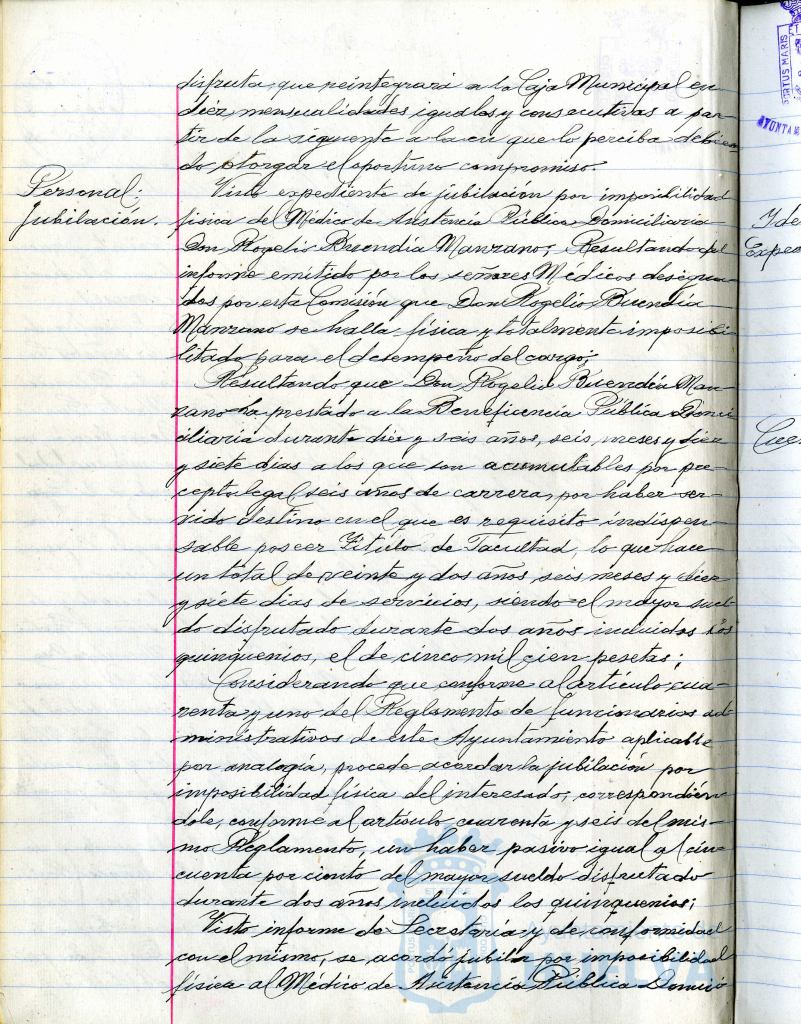 disfruta, que reintegrará a la Caja Municipal en
diez mensualidades iguales y consecutivas a par-
tir de la siguiente a la en que lo perciba debien-
do otorgar el oportuno compromiso.
Personal:
Jubilación.
Visto expediente de jubilación por imposibilidad
física del Médico de Asistencia Pública Domiciliaria
Don Rogelio Buendía Manzano; Resultando del
informe emitido por los señores Médicos designa-
dos por esta Comisión que Don Rogelio Buendía
Manzano se halla física y totalmente imposibi-
litado para el desempeño del cargo;
Resultando que Don Rogelio Buendía Man-
zano ha prestado a la Beneficencia Pública Domi-
ciliaria durante diez y seis años, seis meses y diez
y siete dias a los que son acumutables por pre-
cepto legal seis años de carrera, por haber ser-
vido destino en el que es requisito indispen-
sable poseer Título de Facultad, lo que hace
un total de veinte y dos años, seis meses y diez
y siete dias de servicios, siendo el mayor suel-
do disfrutado durante dos años incluidos los
quinquenios, el de cinco mil cien pesetas;
Considerando que conforme al artículo cua-
renta y uno del Reglamento de funcionarios ad-
ministrativos de este Ayuntamiento aplicable
por analogía, procede acordar la jubilación por
imposibilidad física del interesado, correspondién-
dole, conforme al artículo cuarenta y seis del mis-
mo Reglamento, un haber pasivo igual al cin-
cuenta por ciento del mayor sueldo disfrutado
durante dos años incluidos los quinquenios;
Visto informe de Secretaría y de conformidad
con el mismo, se acordó jubilar por imposibilidad
física al Médico de Asistencia Pública Domici-
HUELVA
Yde
Expe
PORTUS MARIS
AYUNTAM